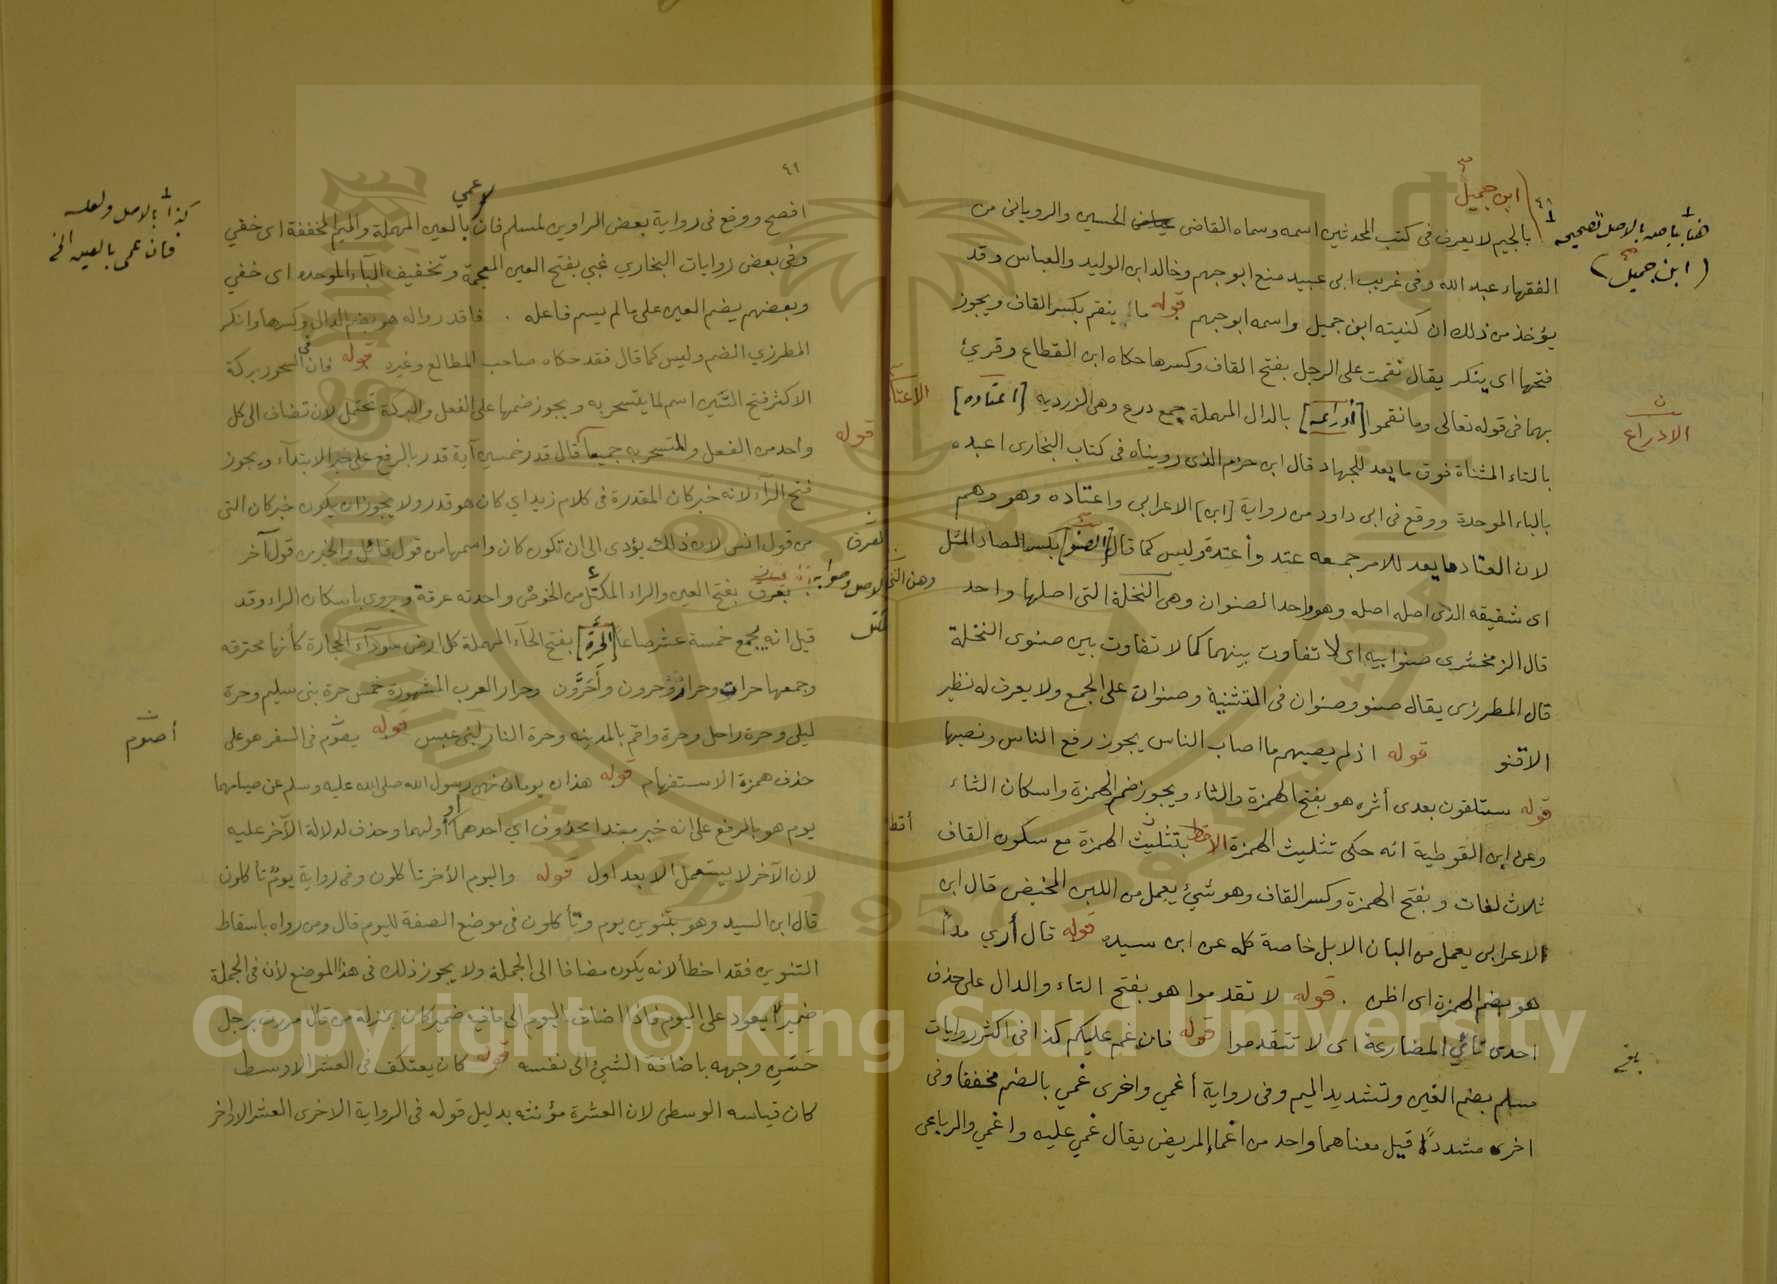 ابن جميل
بالجيم لا يعرف في كتب المحدثين اسمه وسماه القاضي الحسين والروياني من
الفقهاء عبد الله وفي غريب ابي عبيد منع ابو جهم وخالد ابن الوليد والعباس وقد
يؤخذ من ذلك ان كنيته ابن جميل واسمه ابو جهم قوله ما ينقم بكسر القاف ويجوز
فتحها اي ينكر يقال نقمت على الرجل بفتح القاف وكسرها حكاه ابن القطاع وقرئ
بهما في قوله تعالى وما نقموا [أدراعه] بالدال المهملة جمع درع وهي الزردية [اعتاده]
بالتاء المثناة فوق ما يعد للجهاد قال ابن حزم الذي رويناه في كتاب البخاري اعبده
بالباء الموحدة ووقع في ابي داود من رواية [ابن] الاعرابي واعتاده وهو وهم
لان العتاد ما يعد للامر جمعه عتد وأعتدة وليس كما قال [الصنو] بكسر الصاد المثل
اي شقيقه الذي اصله اصله وهو واحد الصنوان وهي النخلة التي اصلها واحد
قال الزمخشري صنو ابيه اي لا تفاوت بينهما كما لا تفاوت بين صنوي النخلة
قال المطرزي يقال صنو وصنوان في التثنية وصنوان على الجمع ولا يعرف له نظير
الا قنو قوله اذ لم يصبهم ما اصاب الناس يجوز رفع الناس ونصبها
قوله ستلقون بعدي أثره هو بفتح الهمزة والثاء ويجوز ضم الهمزة واسكان الثاء
وعن ابن القوطية انه حكى تثليث الهمزة الاقط بتثليث الهمزة مع سكون القاف
ثلاث لغات وبفتح الهمزة وكسر القاف وهو شيئ يعمل من اللبن المخيض قال ابن
الاعرابي يعمل من البان الابل خاصة كله عن ابن سيده قوله قال أري مدا
هو بضم الهمزة اي اظن . قوله لا تقدموا هو بفتح التاء والدال على حذف
احدى تائي المضارعة اي لا تتقدموا قوله فان غم عليكم كذا في اكثر روايات
مسلم بضم الغين وتشديد الميم وفي رواية أغمي واخرى غمي بالضم مخففا وفي
اخرى مشددا قيل معناهما واحد من اغماء المريض يقال غمي عليه واغمي والرباعي
٤٨
هنا بياض بالاصل تصحيحه
(ابن جميل)
الادراع
الاعتاد
أقط
بلغ
٤١
افصح ووقع في رواية بعض الراوين لمسلم فان عمي بالعين المهملة والميم المخففة اي خفي
وفي بعض روايات البخاري غبي بفتح الغين المعجمة وتخفيف الباء الموحده اي خفي
وبعضهم بضم الغين على ما لم يسم فاعله . فاقدروا له هو بضم الدال وكسرها وانكر
المطرزي الضم وليس كما قال فقد حكاه صاحب المطالع وغيره قوله فان في السحور بركة
الاكثر فتح السين اسم لما يتسحر به ويجوز ضمها على الفعل والبركة تحتمل لان تضاف الى كل
واحد من الفعل والمتسحر به جميعا قوله قال قدر خمسين آية قدر بالرفع على خبر الابتداء ويجوز
فتح الراء لانه خبر كان المقدرة في كلام زيد اي كان هو قدر ولا يجوز ان يكون خبر كان التي
من قول انس لان ذلك يؤدي الى ان تكون كان واسمها من قول قائل والخبر من قول آخر
بعرق بفتح العين والراء المكتل من الخوص واحدته عرقة ويروى باسكان الراء وقد
قيل انه يجمع خمسة عشر صاعا [الحرة] بفتح الحاء المهملة كل ارض سوداء الحجارة كأنها محترقه
وجمعها حرات وحرار وحرون وأحرون وحرار العرب المشهورة خمس حرة بني سليم وحرة
ليلى وحرة راجل وحرة واقم بالمدينه وحرة النار لبني عبس قوله يصوم في السفر هو على
حذف همزة الاستفهام قوله هذان يومان نهى رسول الله صلى الله عليه وسلم عن صيامهما
يوم هو بالرفع على انه خبر مبتدا محذوف اي احدهما أو أولهما وحذف لدلالة الآخر عليه
لان الآخر لا يستعمل الا بعد اول قوله واليوم الأخر تأكلون وفي رواية يوم تأكلون
قال ابن السيد وهو بتنوين يوم وتأكلون في موضع الصفة لليوم قال ومن رواه باسقاط
التنوين فقد اخطأ لانه يكون مضافا الى الجملة ولا يجوز ذلك في هذا الموضع لأن في الجملة
ضميرا يعود على اليوم فاذا اضاف اليوم الى ما فيه ضميره كان بمنزلة من قال مررت برجل
حسن وجهه باضافة الشيئ الى نفسه قوله كان يعتكف في العشر الاوسط
كان قياسه الوسطى لان العشرة مؤنثه بدليل قوله في الرواية الاخرى العشر الاواخر
كذا بالاصل ولعله
فان عمي بالعين الخ
العرق
أصوم
Copyright © King Saud University
1957